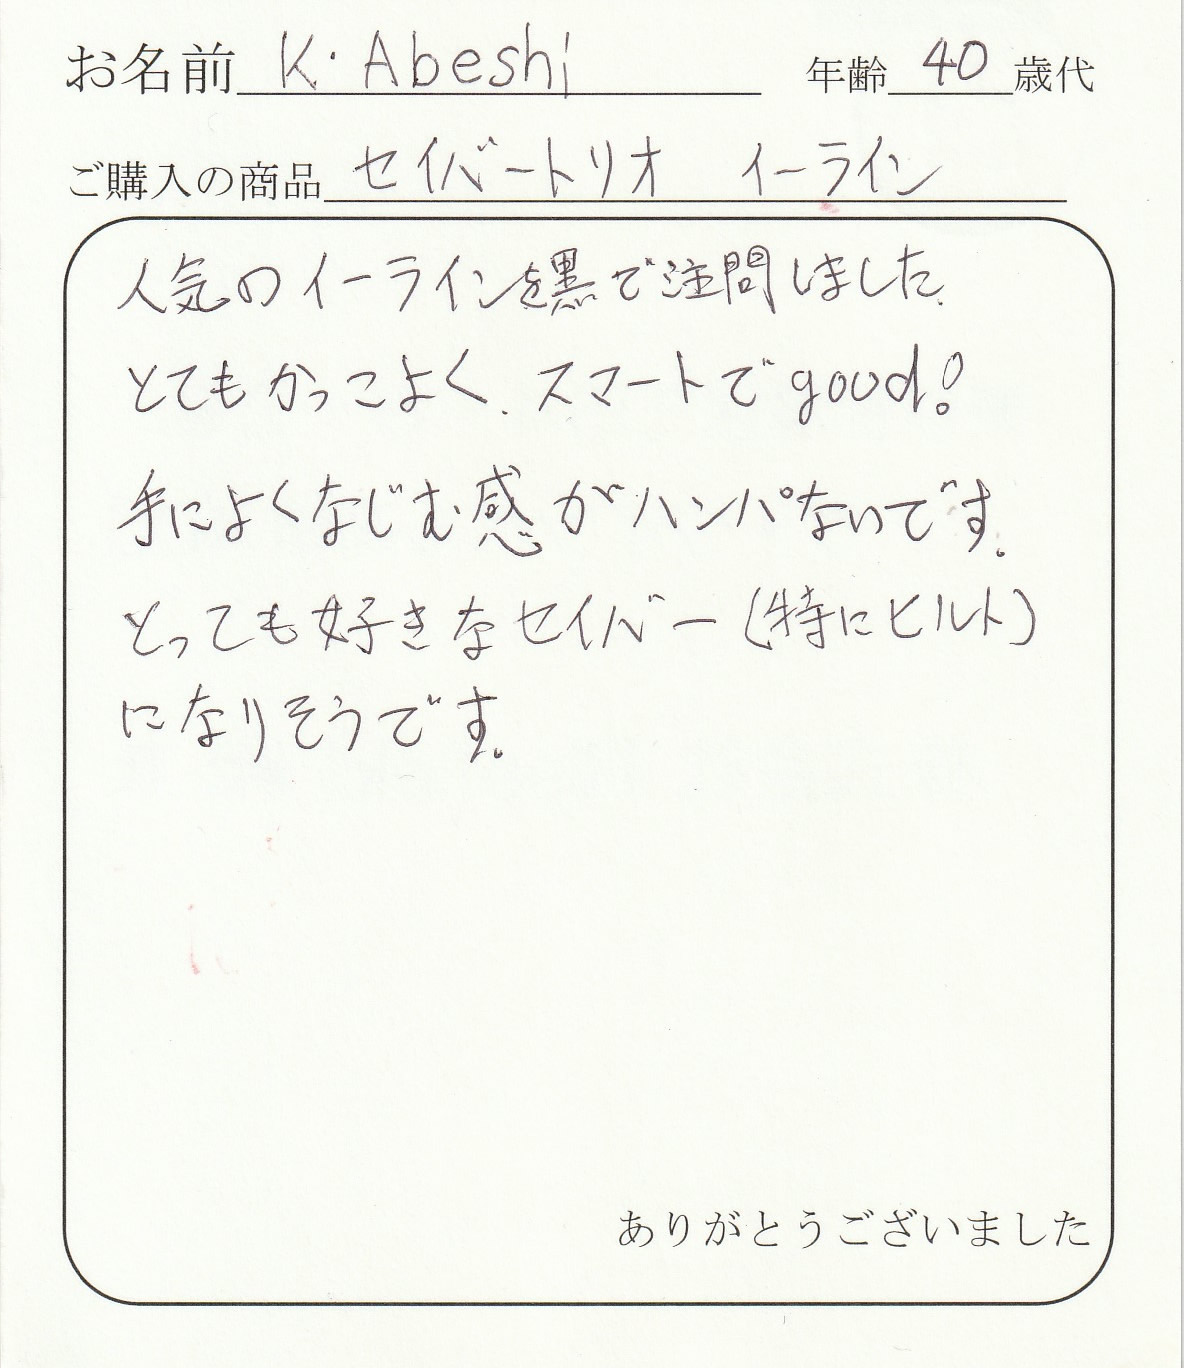 お名前 K・Abeshi 年齢 40 歳代
ご購入の商品 セイバートリオ イーライン
人気のイーラインを黒で注問しました.
とてもかっこよく、スマートでgood!
手によくなじむ感がハンパないです。
とっても好きなセイバー(特にヒルト)
になりそうです。
ありがとうございました